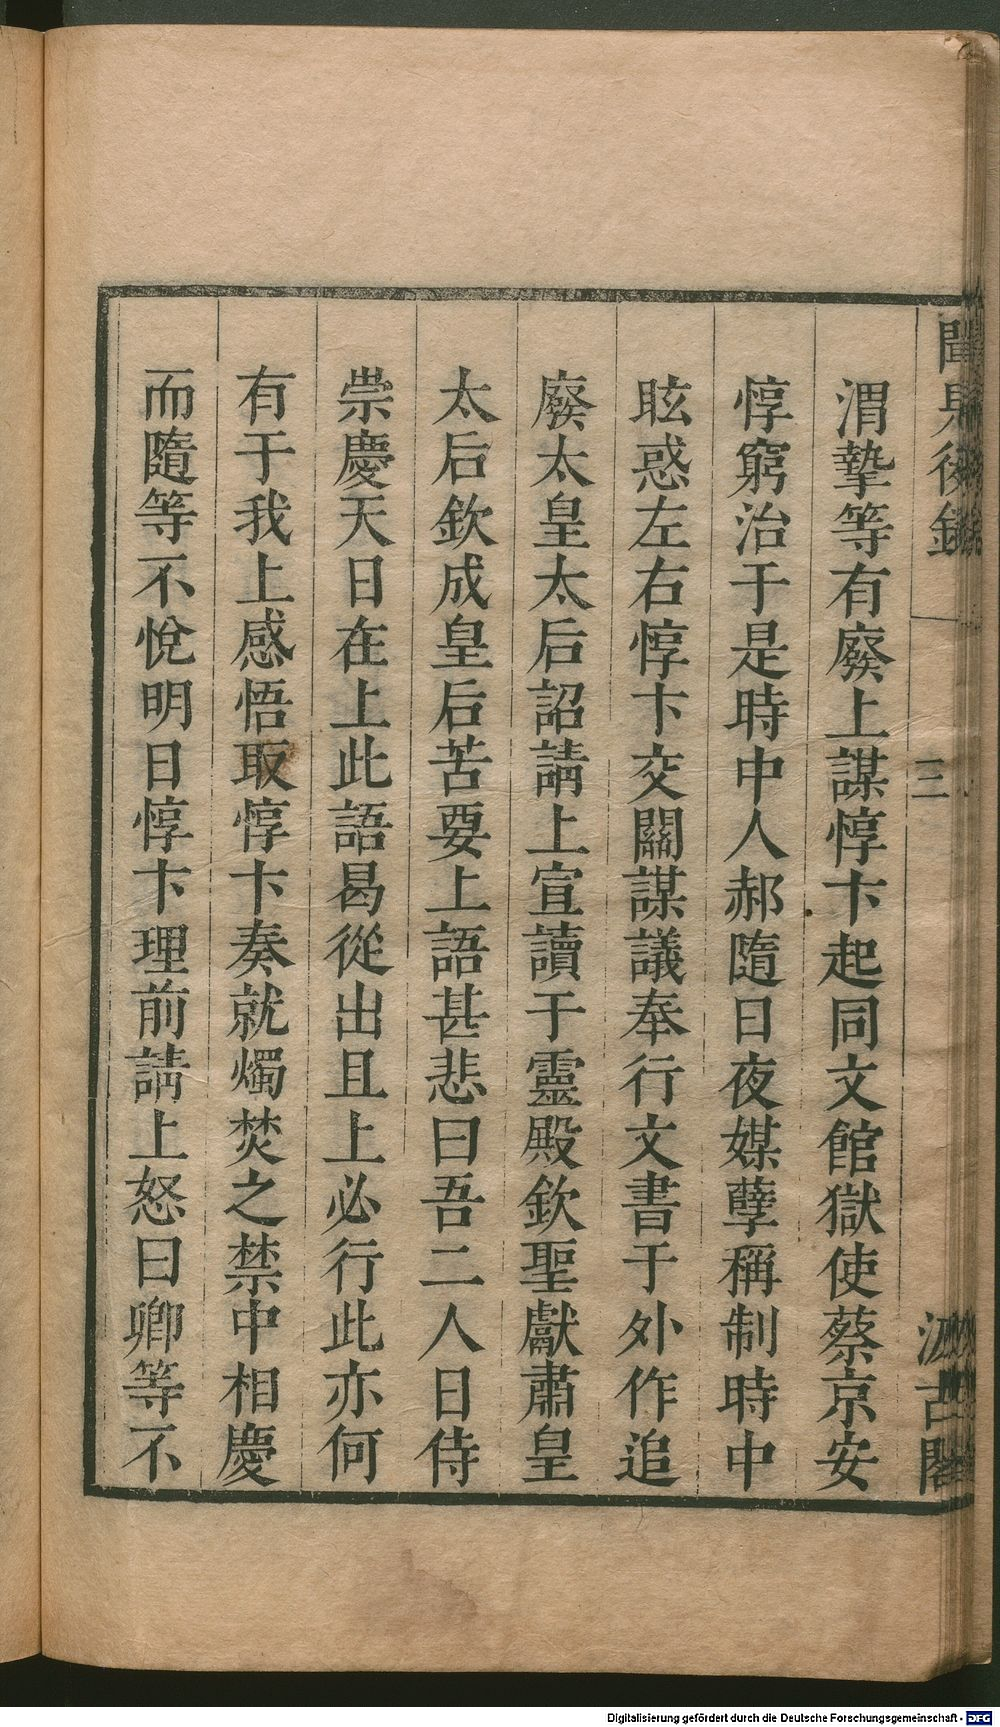 聞見後錄
三
汲古閣
渭摯等有廢上謀惇卞起同文館獄使蔡京安
惇窮治于是時中人郝隨日夜媒孽稱制時中
眩惑左右惇卞交關謀議奉行文書于外作追
廢太皇太后詔請上宣讀于靈殿欽聖獻肅皇
太后欽成皇后苦要上語甚悲曰吾二人日侍
崇慶天日在上此語曷從出且上必行此亦何
有于我上感悟取惇卞奏就燭焚之禁中相慶
而隨等不悅明日惇卞理前請上怒曰卿等不
Digitalisierung gefördert durch die Deutsche Forschungsgemeinschaft - DFG